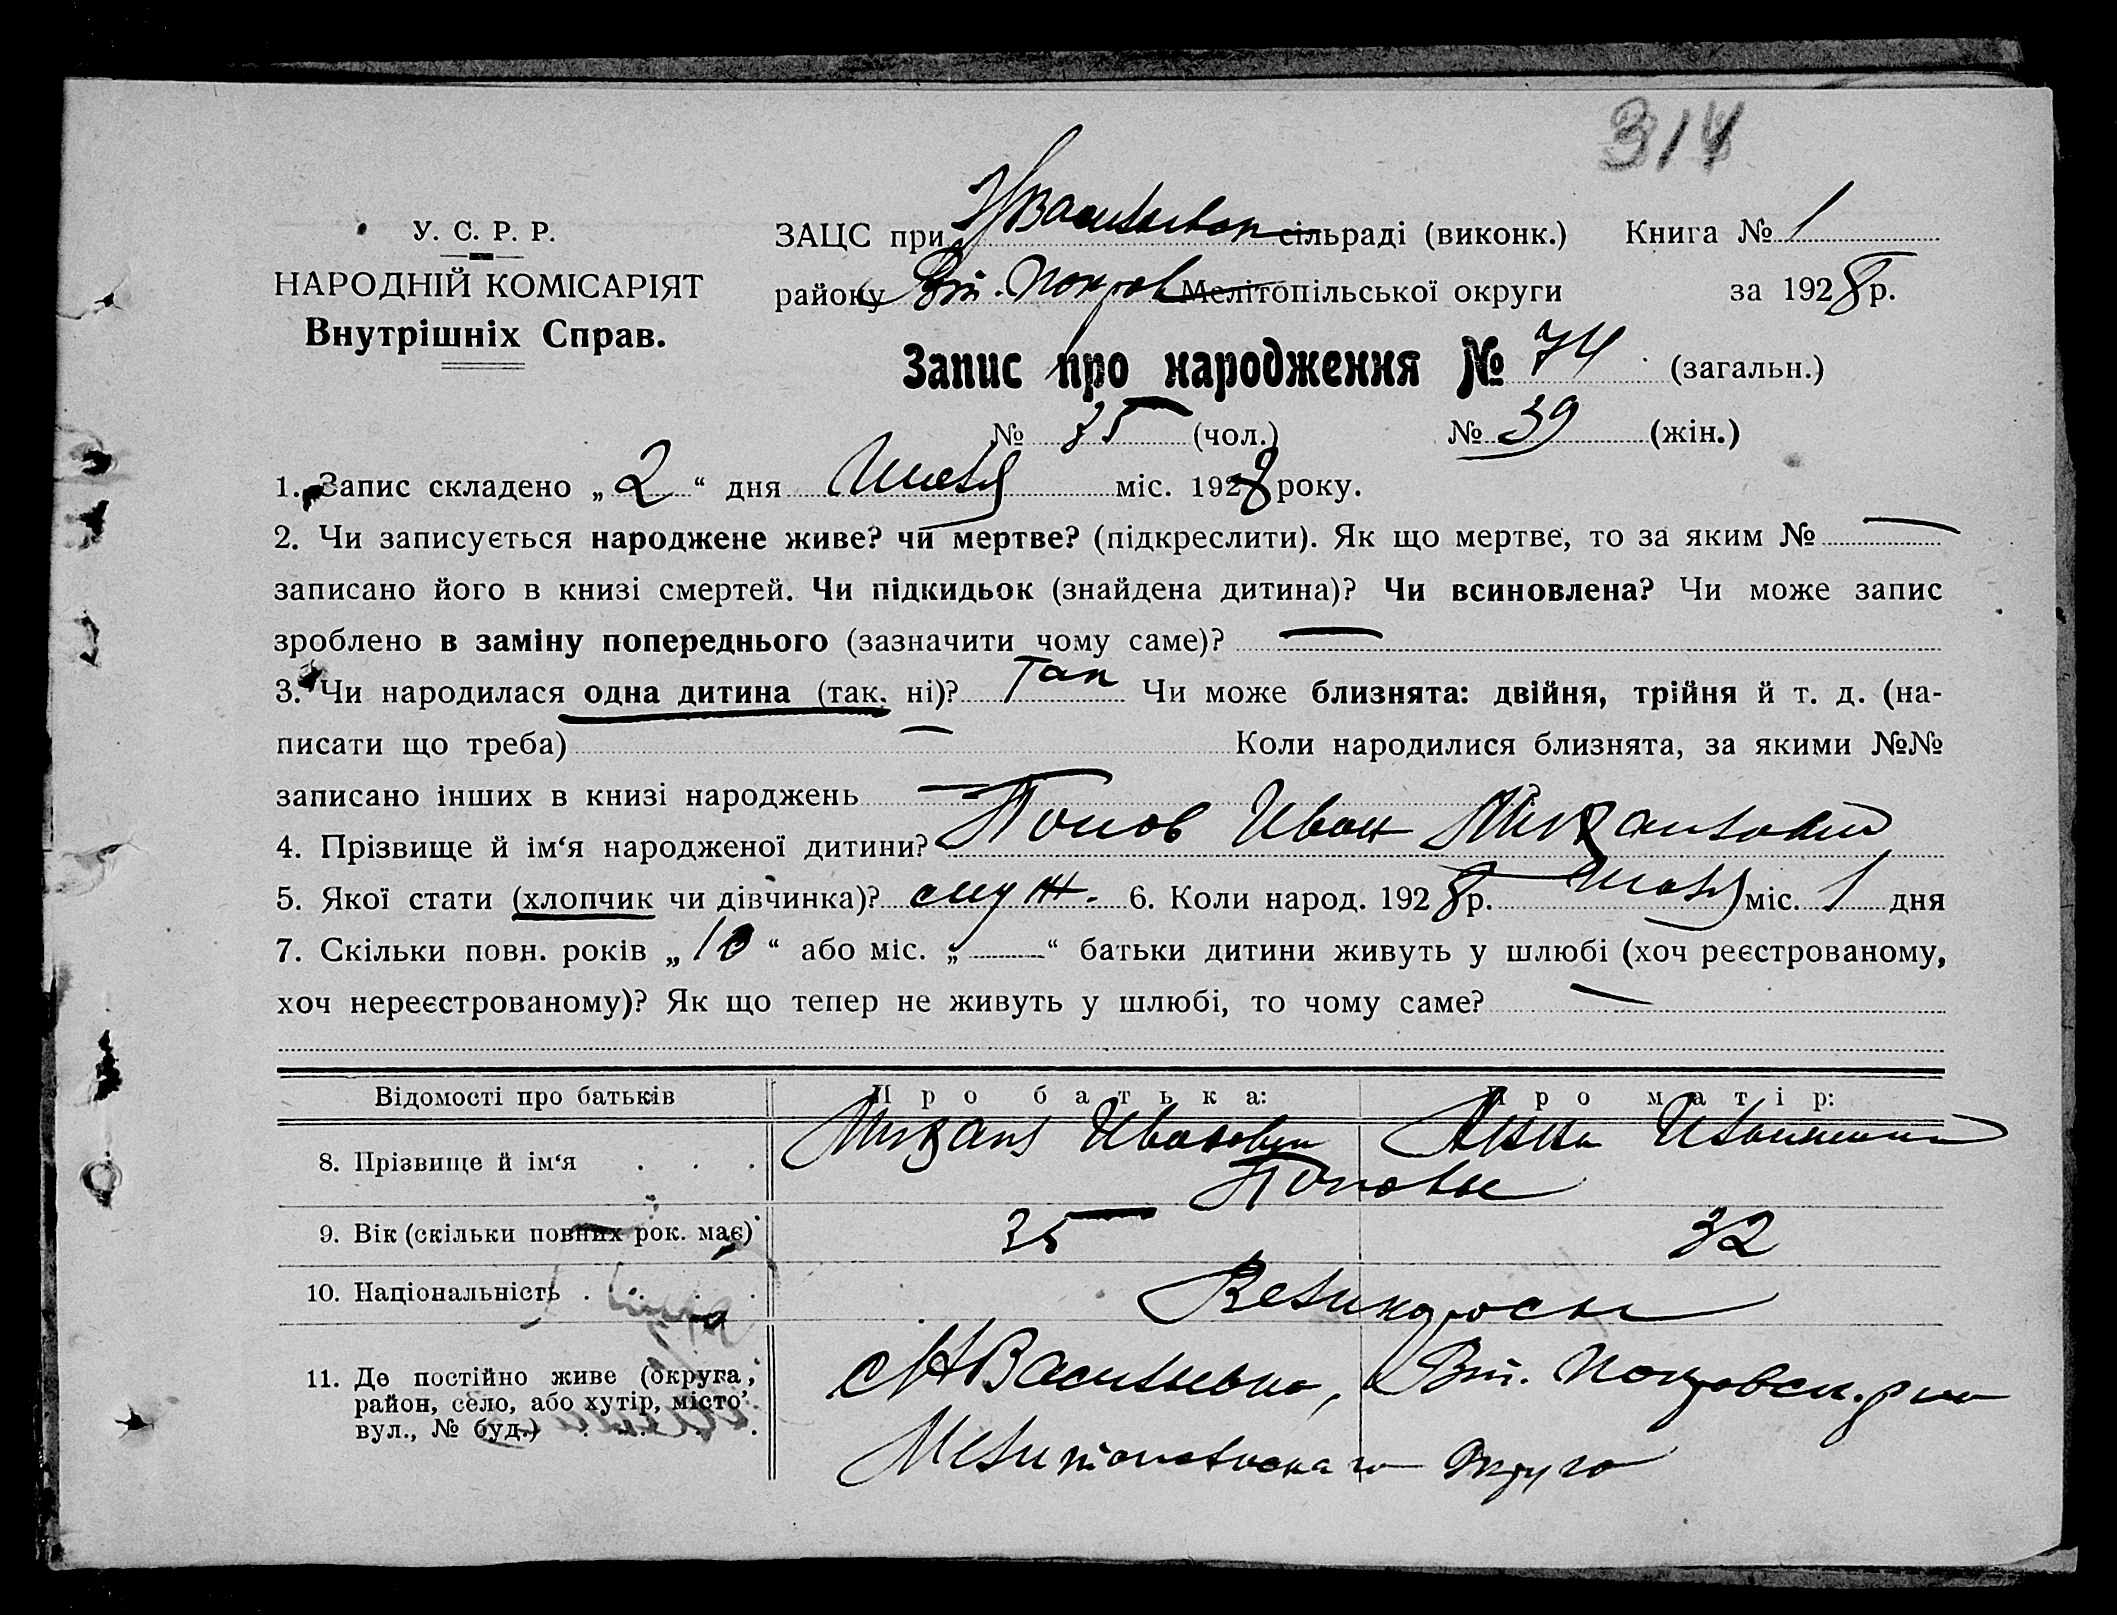 314
У. С. Р. Р.
НАРОДНІЙ КОМІСАРІЯТ
Внутрішніх Справ.
ЗАЦС при НВасильевск сільраді (виконк.) Книга № 1
району Вт. Покров Мелітопільської округи за 1928 р.
Запис про народження № 74 (загальн.)
№ 35 (чол.) № 39 (жін.)
1. Запис складено „ 2 “ дня Июля міс. 1928 року.
2. Чи записується народжене живе? чи мертве? (підкреслити). Як що мертве, то за яким № —
записано його в книзі смертей. Чи підкидьок (знайдена дитина)? Чи всиновлена? Чи може запис
зроблено в заміну попереднього (зазначити чому саме)? —
3. Чи народилася одна дитина (так, ні)? Так Чи може близнята: двійня, трійня й т. д. (на-
писати що треба) — Коли народилися близнята, за якими №№
записано інших в книзі народжень —
4. Прізвище й ім‘я народженої дитини? Попов Иван Михайлович
5. Якої стати (хлопчик чи дівчинка)? муж. 6. Коли народ. 1928 р. Июля міс. 1 дня
7. Скільки повн. років „ 10 “ або міс. „ — “ батьки дитини живуть у шлюбі (хоч реєстрованому,
хоч нереєстрованому)? Як що тепер не живуть у шлюбі, то чому саме? —
Відомості про батьків Про батька: Про матір:
8. Прізвище й ім‘я . . . Михаил Иванович Анна Ивановна
Поповы
9. Вік (скільки повних рок. має) 35 32
10. Національність . . . . Великоросы
11. Де постійно живе (округа, район, село, або хутір, місто вул., № буд.) . . . с НВасильевка, Вт. Покровск. р-на
Мелитопольскаго Округа